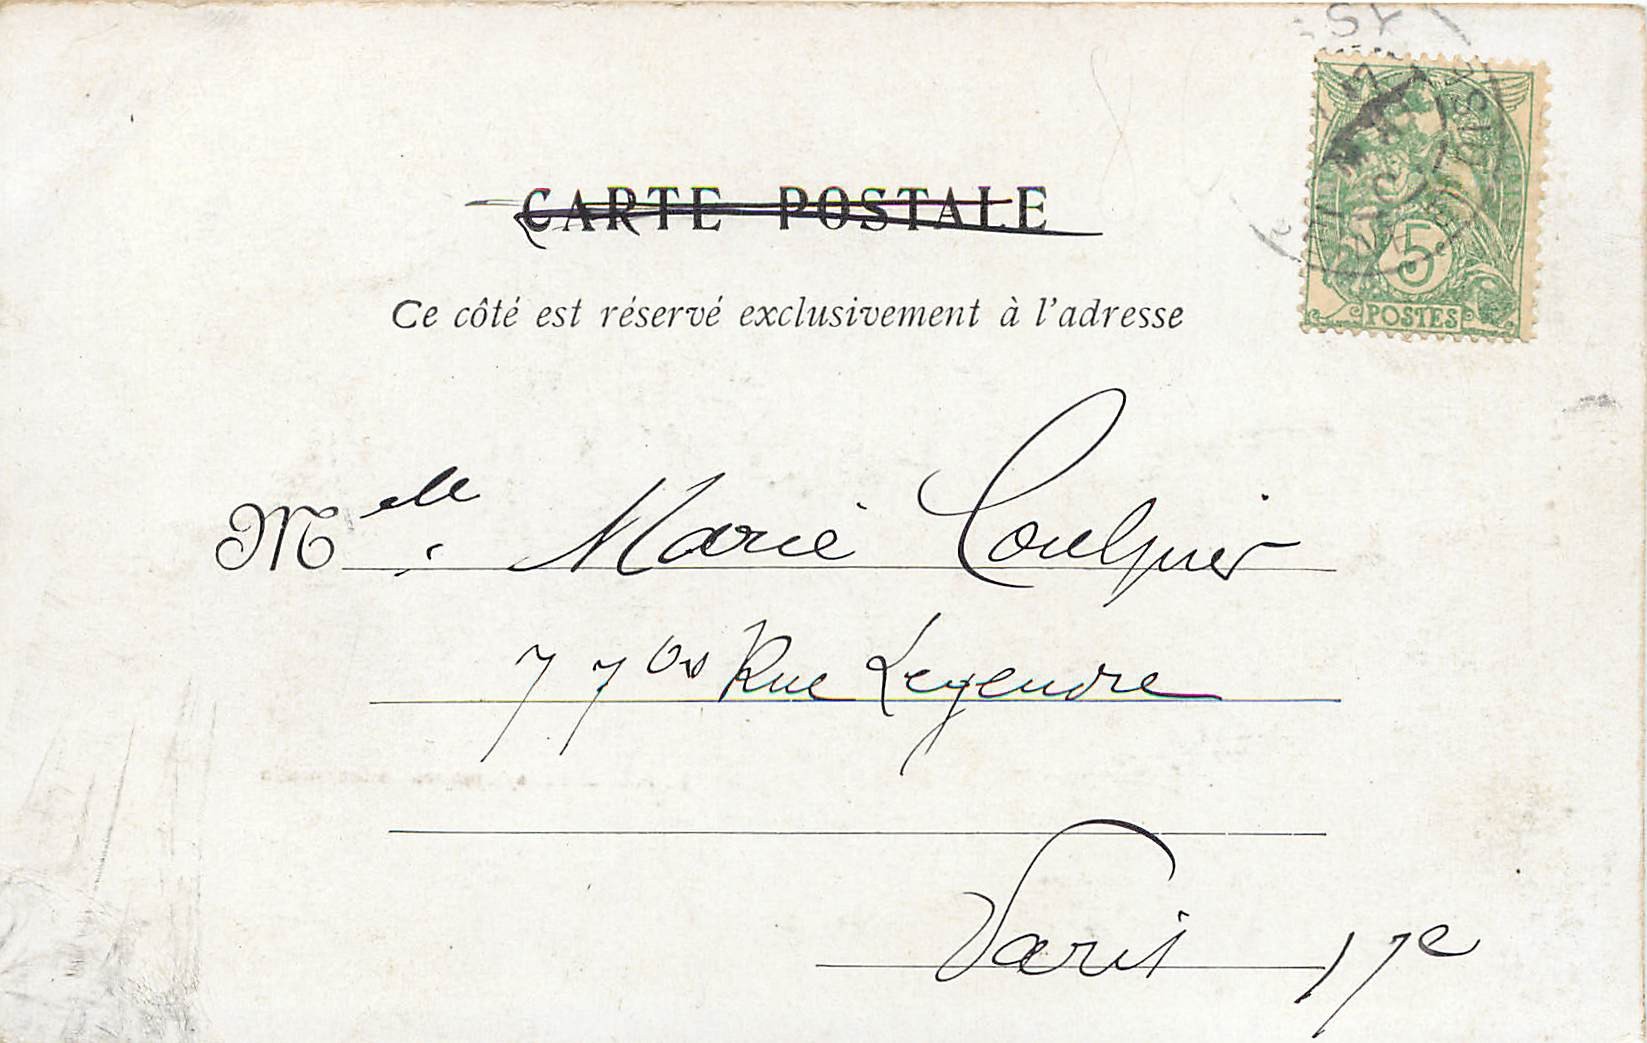 CARTE POSTALE
Ce côté est réservé exclusivement à l'adresse
Melle Marie
77 bis Rue Legendre
Paris 17e
5
POSTES